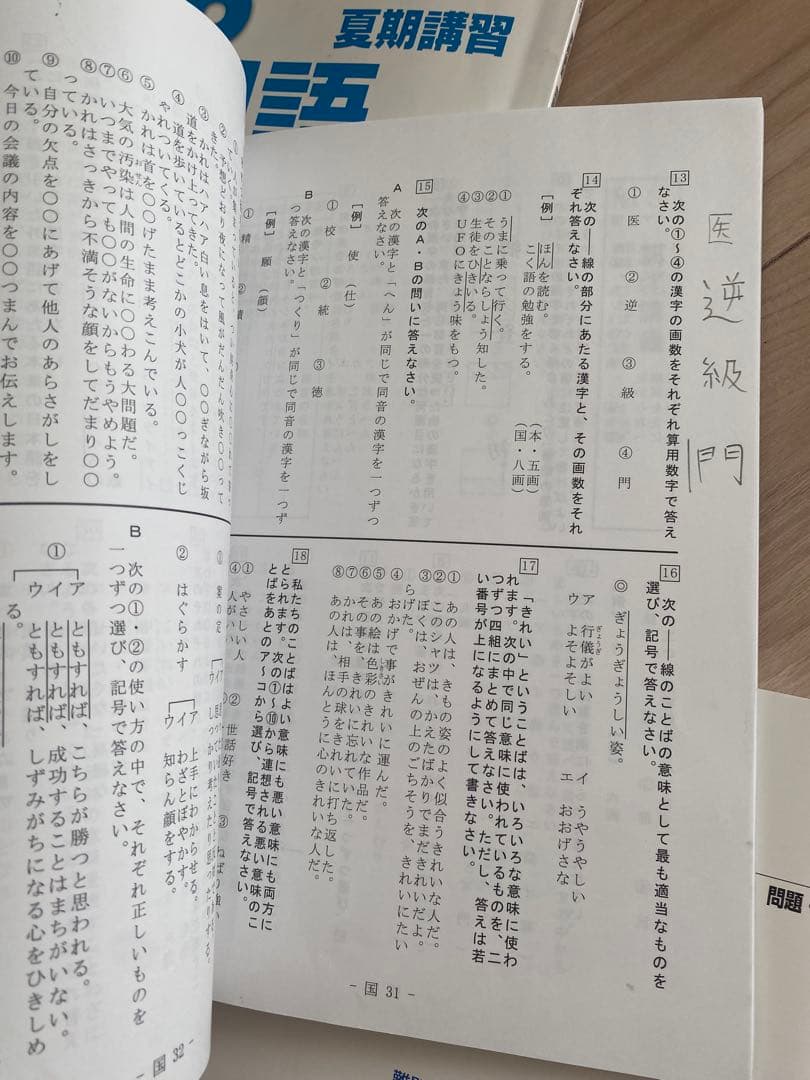 夏期講習
国語
医逆級門
13 次の①〜④の漢字の画数をそれぞれ算用数字で答え
なさい。
① 医 ② 逆 ③ 級 ④ 門
14 次の——線の部分にあたる漢字と、その画数をそれ
ぞれ答えなさい。
〔例〕 ほんを読む。 (本・五画)
こく語の勉強をする。 (国・八画)
① うまに乗って行く。
② そのことならしょう知した。
③ 生徒をひきいる。
④ UFOにきょう味をもつ。
15 次のA・Bの問いに答えなさい。
A 次の漢字と「へん」が同じで同音の漢字を一つずつ
答えなさい。
〔例〕 使(仕)
① 校 ② 統 ③ 徳
B 次の漢字と「つくり」が同じで同音の漢字を一つず
つ答えなさい。
〔例〕 願(顔)
① 精 ② 績
16 次の——線のことばの意味として最も適当なものを
選び、記号で答えなさい。
◎ ぎょうぎょうしい姿。
ア 行儀がよい イ うやうやしい
ぎょうぎ
ウ よそよそしい エ おおげさな
17 「きれい」ということばは、いろいろな意味に使わ
れます。次の中で同じ意味に使われているものを、二
つずつ四組にまとめて答えなさい。ただし、答えは若
い番号が上になるようにして書きなさい。
① あの人は、きもの姿のよく似合うきれいな人だ。
② このシャツは、かえたばかりでまだきれいだよ。
③ ぼくは、おぜんの上のごちそうを、きれいにたい
らげた。
④ おかげで事がきれいに運んだ。
⑤ あの絵は色彩のきれいな作品だ。
⑥ その事を、きれいに忘れていた。
⑦ かれは、相手の球をきれいに打ち返した。
⑧ あの人は、ほんとうに心のきれいな人だ。
18 私たちのことばはよい意味にも悪い意味にも両方に
とられます。次の①〜⑩から連想される悪い意味のこ
とばをあとのア〜コから選び、記号で答えなさい。
① やさしい人 ② 世話好き
④ 人がいい
- 国 31 -
きた。
③ かれはハアハア白い息をはいて、〇〇ぎながら坂
道をかけ上ってきた。
④ 道を歩いているとどこかの小犬が人〇〇っこくじ
ゃれついてくる。
⑤ かれは首を〇〇げたまま考えこんでいる。
⑥ 大気の汚染は人間の生命に〇〇わる大問題だ。
おせん
⑦ いつまでやっても〇〇がないからもうやめよう。
⑧ かれはさっきから不満そうな顔をしてだまり〇〇
っている。
⑨ 自分の欠点を〇〇にあげて他人のあらさがしをし
ている。
⑩ 今日の会議の内容を〇〇つまんでお伝えします。
② はぐらかす
ア 上手にわからせる。
イ わざとぼやかす。
ウ 知らん顔をする。
B 次の①・②の使い方の中で、それぞれ正しいものを
一つずつ選び、記号で答えなさい。
①
ア ともすれば、こちらが勝つと思われる。
イ ともすれば、成功することはまちがいない。
ウ ともすれば、しずみがちになる心をひきしめ
る。
- 国 32 -
問題